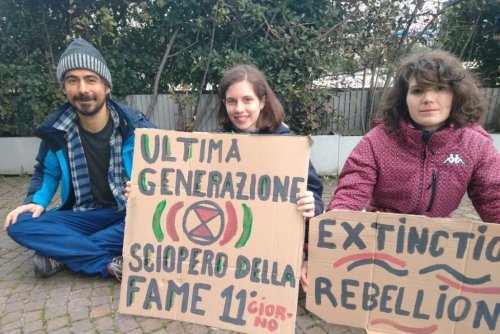 ULTIMA
GENERAZIONE
SCIOPERO DELLA
FAME 11° GIORNO
EXTINCTIO
REBELLION
Kappa